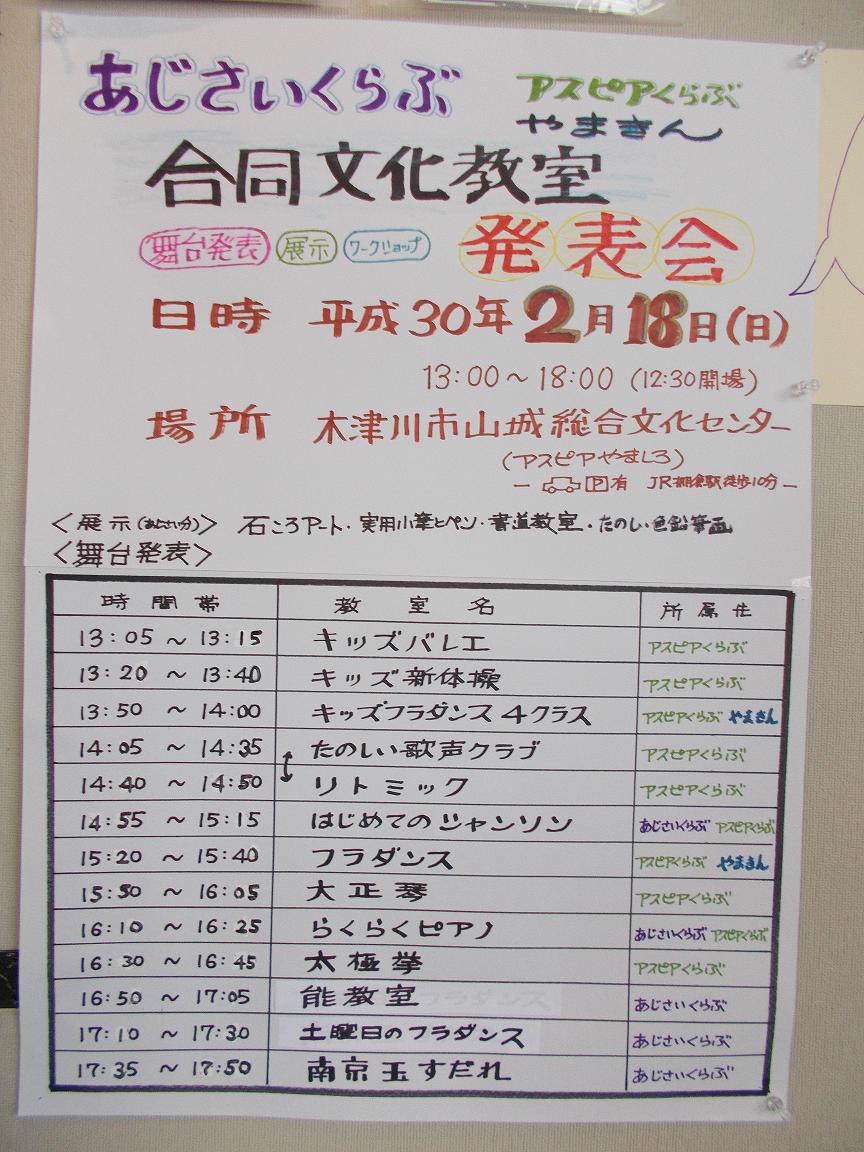 あじさいくらぶ アスピアくらぶ
やまきん
合同文化教室
舞台発表 展示 ワークショップ 発表会
日時 平成30年2月18日(日)
13:00～18:00 (12:30開場)
場所 木津川市山城総合文化センター
(アスピアやましろ)
－ P有 JR棚倉駅徒歩10分－
〈展示(あじさい分)〉 石ころアート・実用小筆とペン・書道教室・たのしい色鉛筆画
〈舞台発表〉
時間帯 教室名 所属性
13:05～13:15 キッズバレエ アスピアくらぶ
13:20～13:40 キッズ新体操 アスピアくらぶ
13:50～14:00 キッズフラダンス4クラス アスピアくらぶ やまきん
14:05～14:35 たのしい歌声クラブ アスピアくらぶ
14:40～14:50 リトミック アスピアくらぶ
14:55～15:15 はじめてのシャンソン あじさいくらぶ アスピアくらぶ
15:20～15:40 フラダンス アスピアくらぶ やまきん
15:50～16:05 大正琴 アスピアくらぶ
16:10～16:25 らくらくピアノ あじさいくらぶ アスピアくらぶ
16:30～16:45 太極拳 アスピアくらぶ
16:50～17:05 能教室 あじさいくらぶ
17:10～17:30 土曜日のフラダンス あじさいくらぶ
17:35～17:50 南京玉すだれ あじさいくらぶ